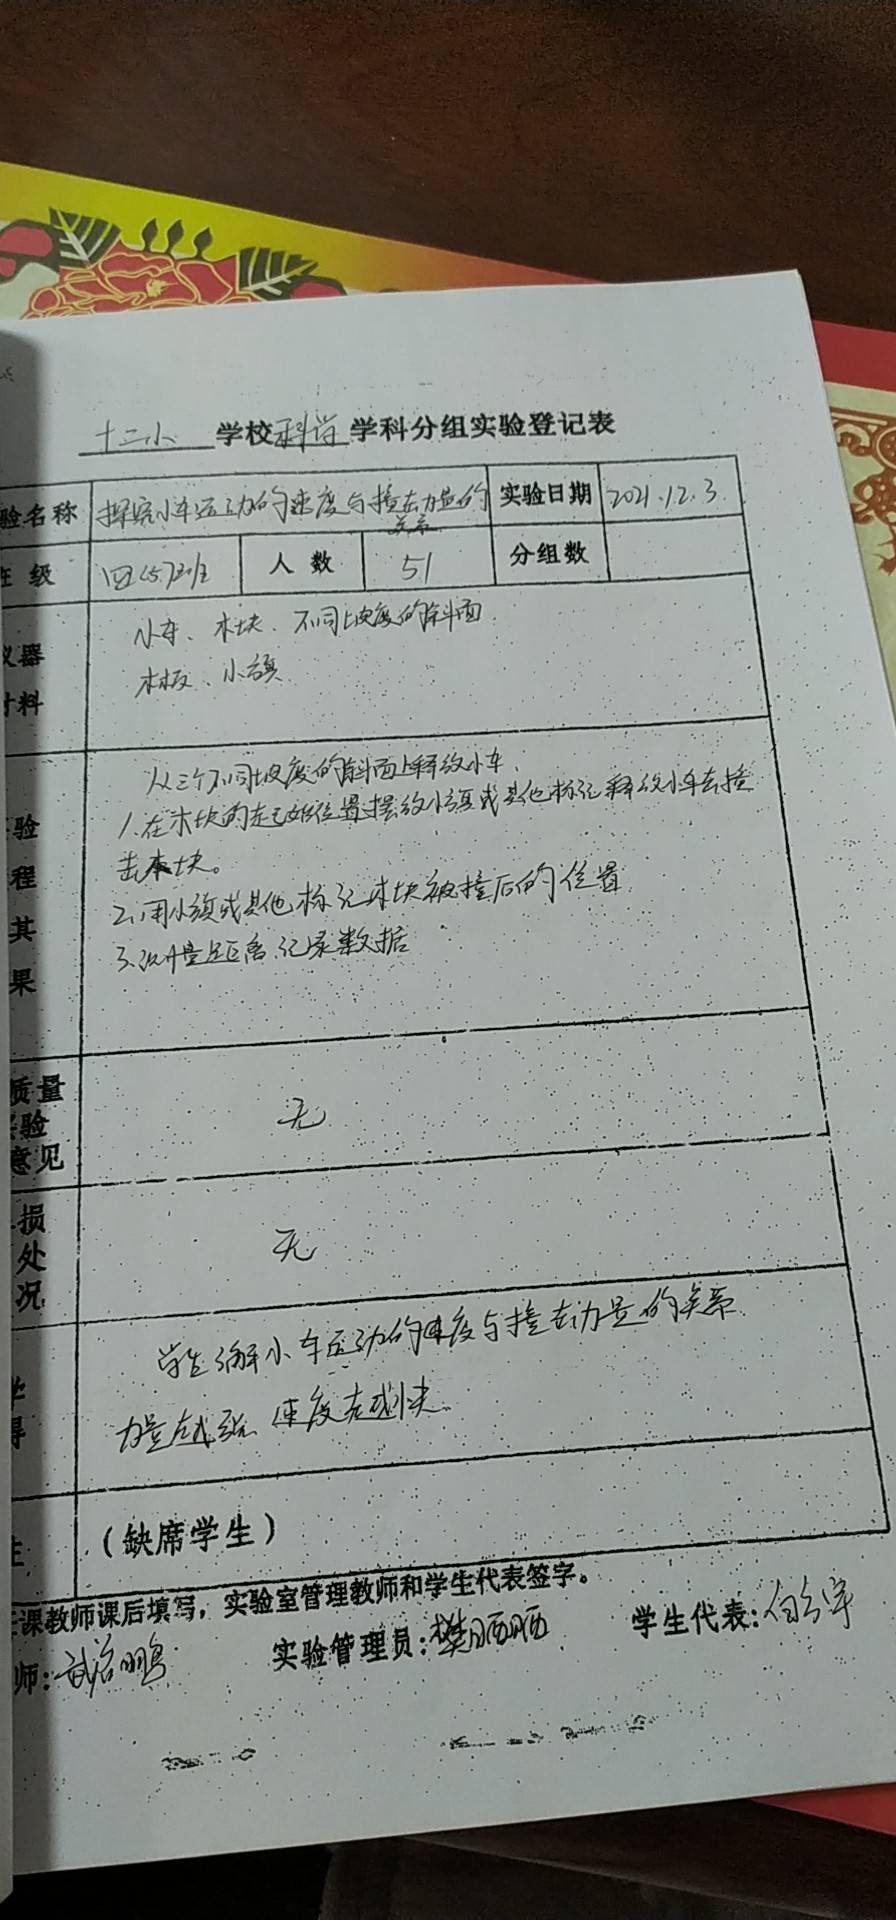 十二小 学校科学学科分组实验登记表
验名称 探究小车运动的速度与撞击力量的关系 实验日期 2021.12.3
级 人数 51 分组数
仪器 小车、木块、不同坡度的斜面
材料 木板、小旗
从三个不同坡度的斜面上释放小车,
验 1.在木块的起始位置摆放小旗或其他标记释放小车去撞
程 击木块。
其 2.用小旗或其他标记木块被撞后的位置
果 3.测量距离,记录数据
质量
验 无
意见
损
处 无
况
学生了解小车运动的速度与撞击力量的关系
得 力量越强 速度越快
(缺席学生)
课教师课后填写,实验室管理教师和学生代表签字。
师: 实验管理员:樊晒晒 学生代表: